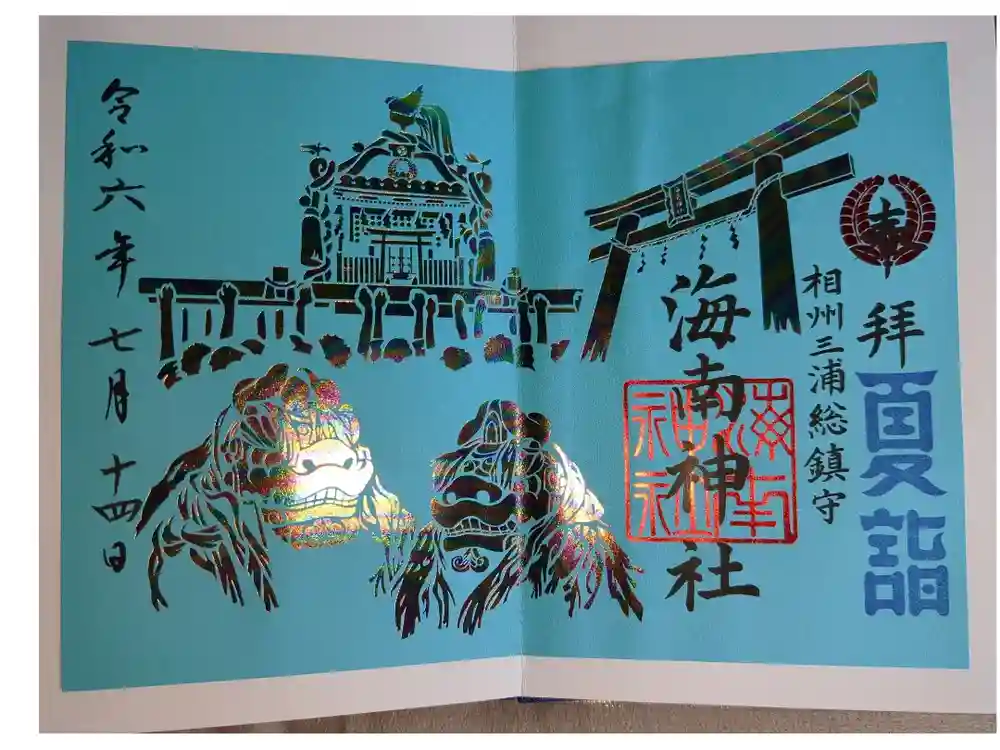 夏詣
奉
拝
相州三浦総鎮守
海南神社
海南神社
令和六年七月十四日